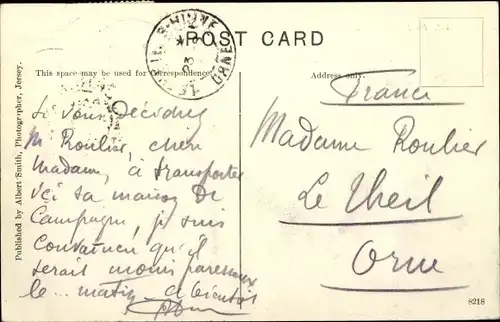 POST CARD
This space may be used for Correspondence.
Address only.
Published by Albert Smith, Photographer, Jersey.
Si vous décidez
Mr Roulier, chère
Madame, à transporter
ici sa maison de
Campagne, je suis
convaincu qu'il
serait moins paresseux
le ... matin - à bientôt
France
Madame Roulier
Le Theil
Orne
8218
ORNE